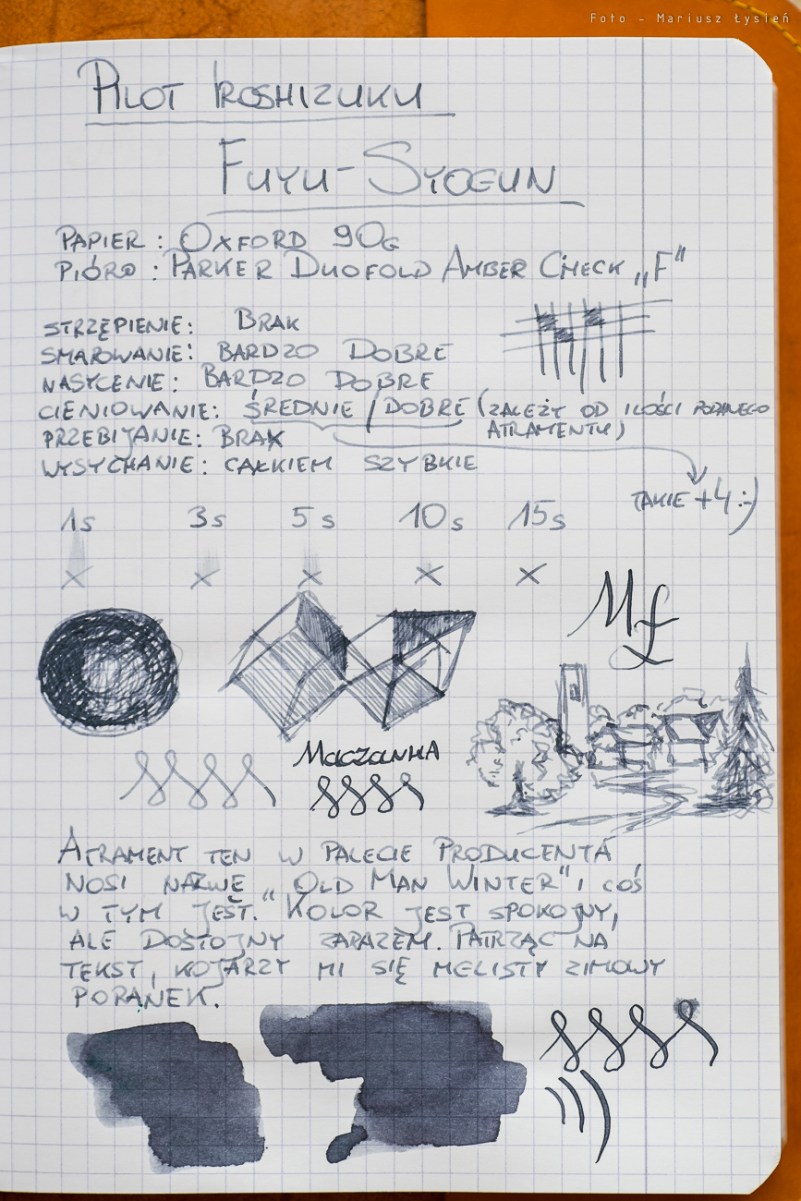 Foto - Mariusz Łysień
Pilot Iroshizuku
Fuyu-Syogun
Papier: Oxford 90g
Pióro: Parker Duofold Amber Check „F"
Strzępienie: Brak
Smarowanie: Bardzo dobre
Nasycenie: Bardzo dobre
Cieniowanie: Średnie / Dobre (zależy od ilości podanego
atramentu)
Przebijanie: Brak
Wysychanie: całkiem szybkie
takie +4 :-)
1s 3s 5s 10s 15s
x x x x x
MŁ
Maczanka
Atrament ten w palecie producenta
nosi nazwę „Old Man Winter" i coś
w tym jest. Kolor jest spokojny,
ale dostojny zarazem. Patrząc na
tekst, kojarzy mi się mglisty zimowy
poranek.